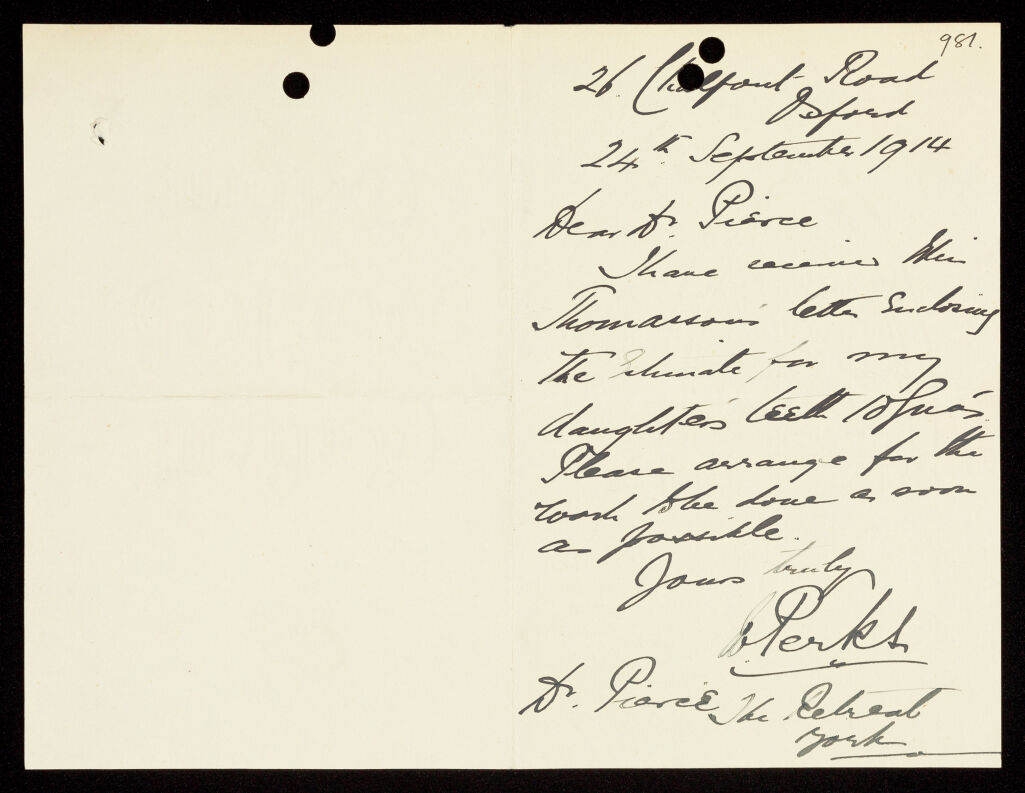 981.
26 Chalfont Road
Oxford
24th September 1914
Dear Dr. Pierce
I have received
Thomasson's letter enclosing
the Estimate for my
daughter's teeth 10 Gna's.
Please arrange for the
work to be done as soon
as possible.
Yours truly
Perks
Dr. Pierce The Retreat
York